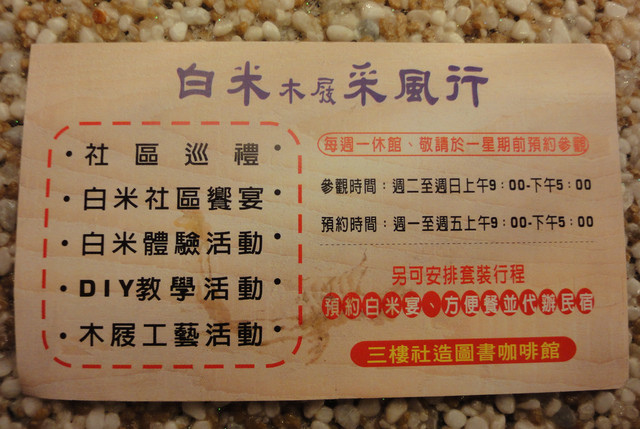 白米木屐采風行
•社區巡禮•
•白米社區饗宴•
•白米體驗活動•
•DIY教學活動•
•木屐工藝活動•
每週一休館、敬請於一星期前預約參觀
參觀時間：週二至週日上午9：00-下午5：00
預約時間：週一至週五上午9：00-下午5：00
另可安排套裝行程
預約白米宴、方便餐並代辦民宿
三樓社造圖書咖啡館